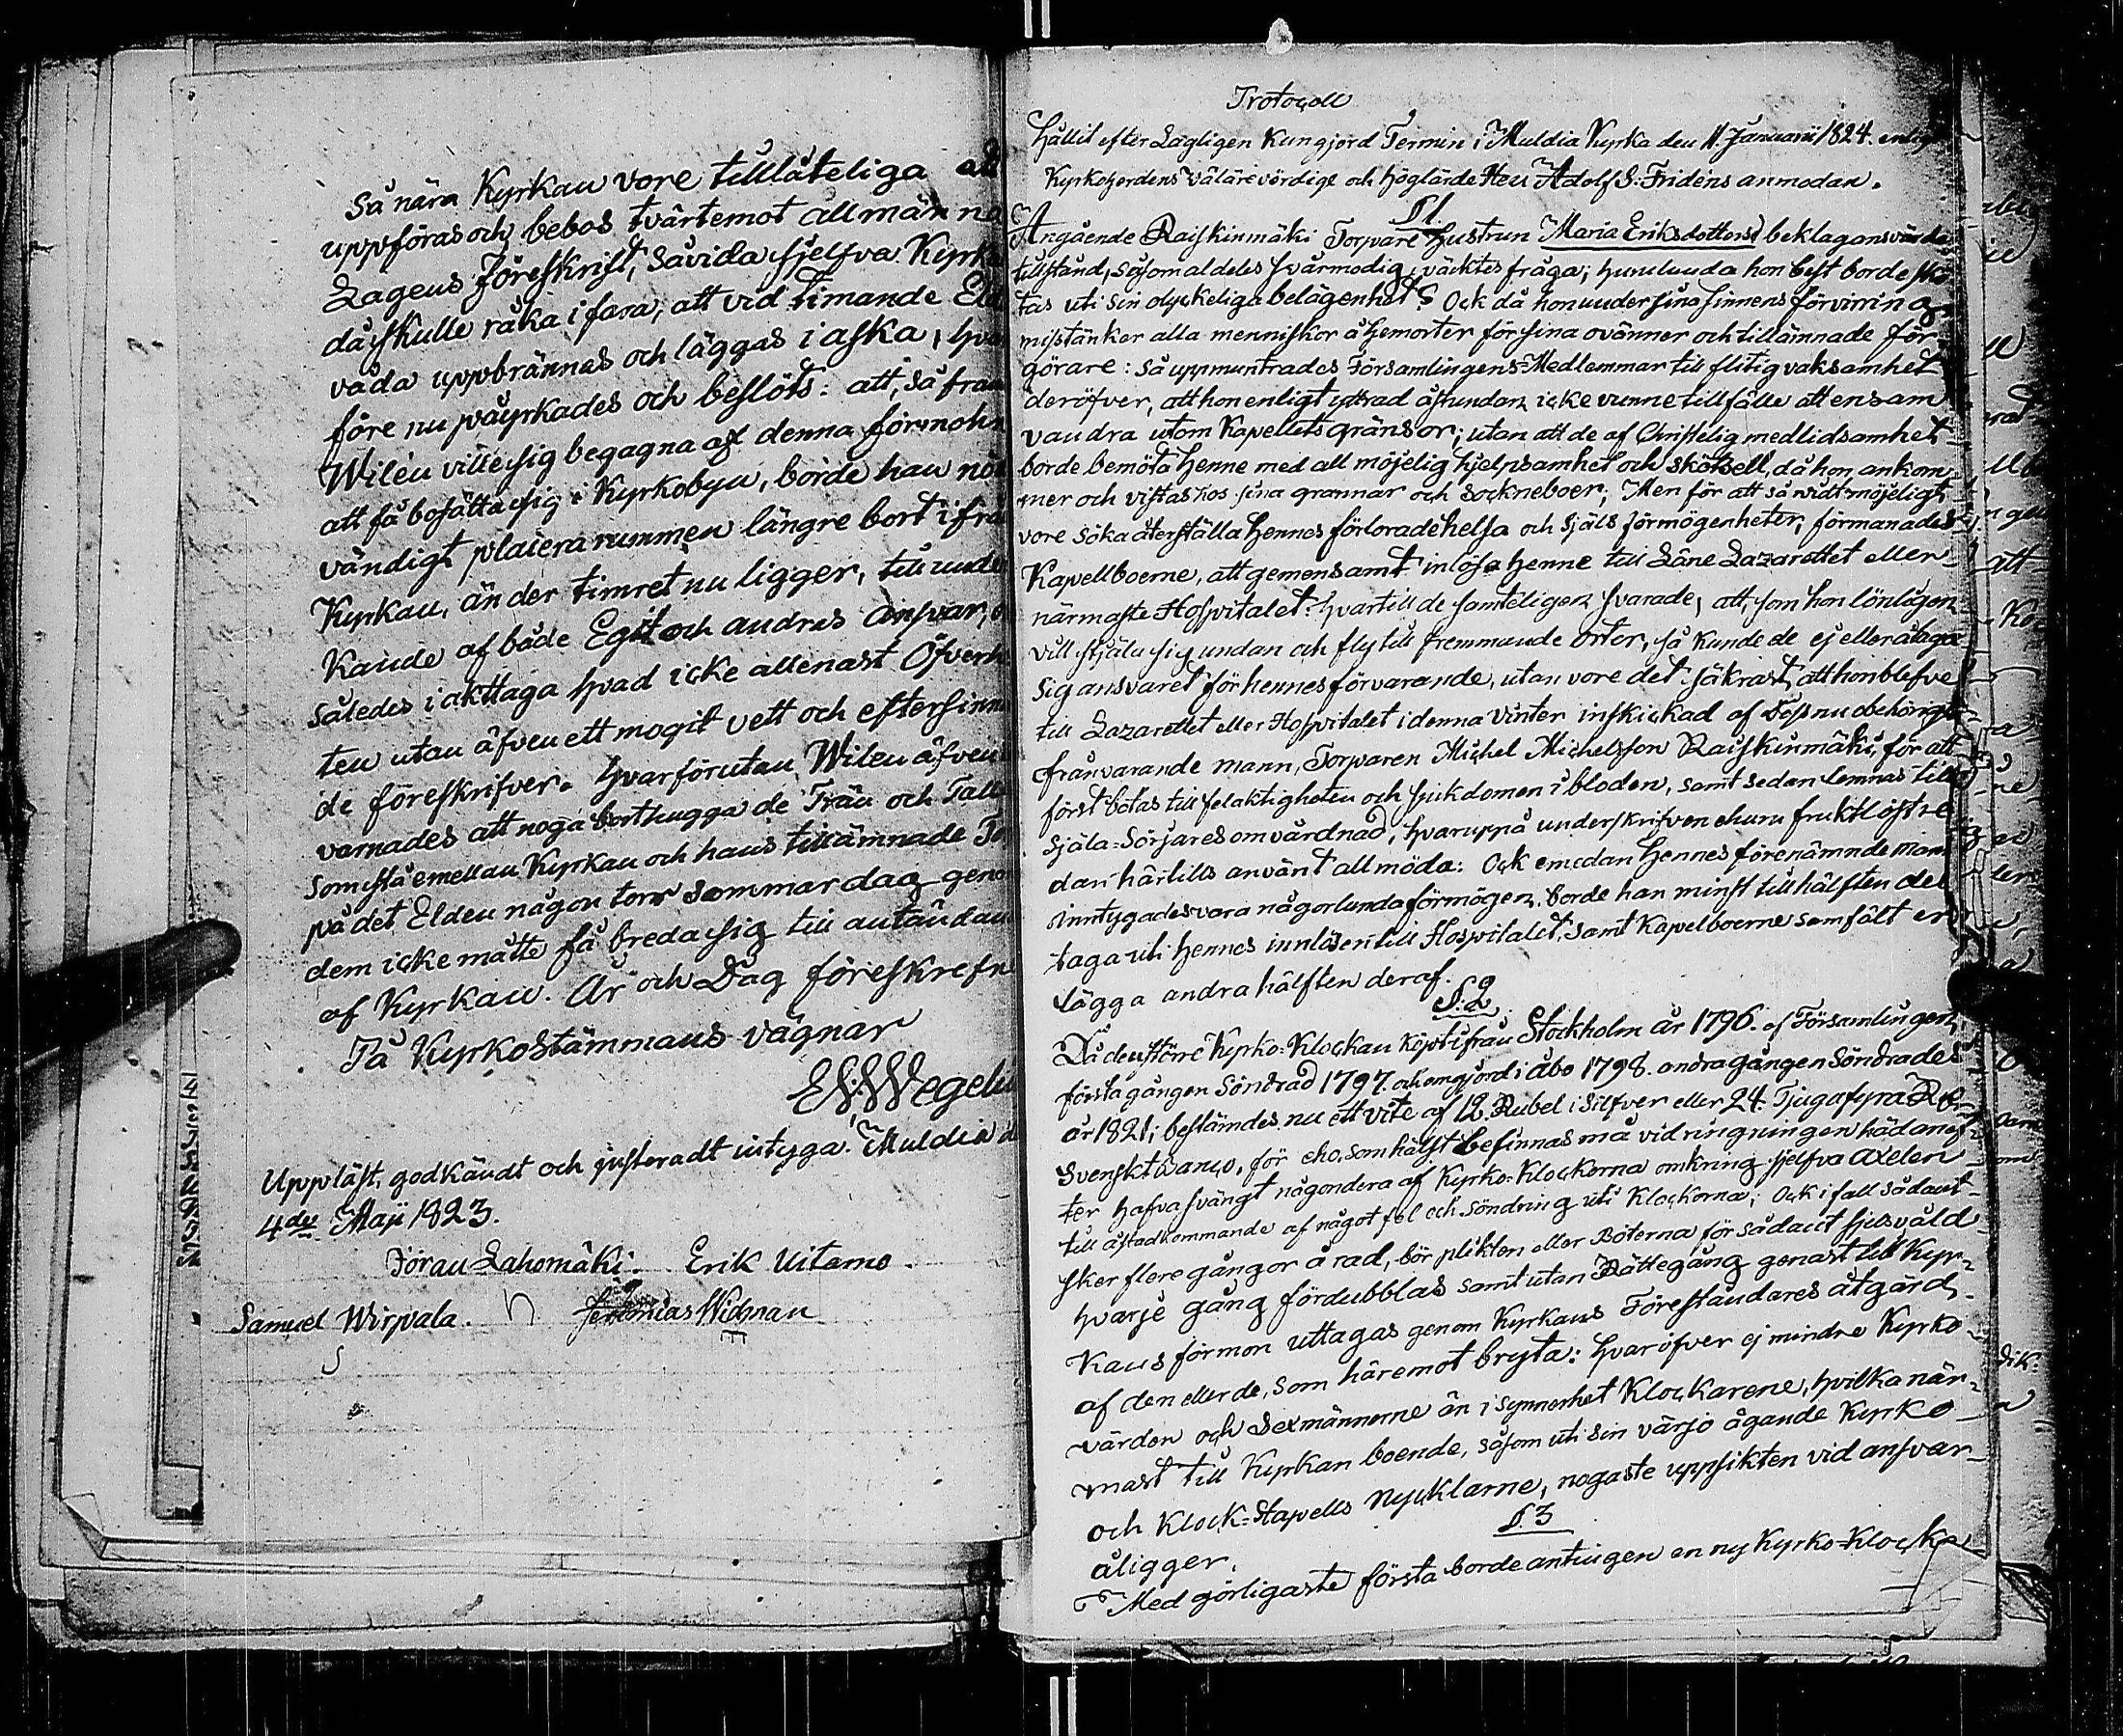 Så nära Kyrkan vore tillåteliga att
uppföras och bebos tvärtemot allmänna
Lagens föreskrift, såvida sjelfva Kyrka
då skulle råka i fara, att vid timande Eld
våda uppbrännas och läggas i aska, hva
före nu påyrkades och beslöts: att, så fram
Wilén ville sig begagna af denna förmohn
att få bosätta sig i Kyrkobyn, borde han nöd
vändigt placera rummen längre bort ifrån
Kyrkan, än der timret nu ligger, till und
Kande af både Egit och andras ansvar, o
således iakttaga hvad icke allenast Öfverh
ten utan äfven ett mogit vett och eftersinn
de föreskrifver. Hvarförutan Wilen äfven
varnades att noga borthugga de Trän och Tall
som stå emellan Kyrkan och hans tillämnade To
på det Elden någon torr sommardag geno
dem icke måtte få breda sig till antändan
af Kyrkan. År och Dag föreskrefn
På Kyrkostämmans vägnar
E: Wegeliu
Uppläst, godkändt och justeradt intyga. Muldia d
4de Maji 1823.
Jöran Lahomäki. Erik Uitamo.
Samuel Wirpala. Jeremias Widman
Protocoll
Hållit efter Lagligen Kungjord Termin i Muldia Kyrka den 11. Januarii 1824. enligt
Kyrkoherdens välärevördige och höglärde Herr Adolf S: Fridéns anmodan.
§ 1.
Angående Raiskinmäki Torpare Hustrun Maria Eriksdotters beklagansvärda
tillstånd, såsom aldeles svårmodig, väcktes fråga; hurulunda hon best borde skö
tas uti sin olyckeliga belägenhet? Ock då hon under sina sinnens förvirring
misstänker alla menniskor å hemorter för sina ovänner och tillämnade för-
görare: så uppmuntrades Församlingens-Medlemmar till flitig vaksamhet
deröfver, att hon enligt yttrad åstundan icke vunne tillfälle att ensam
vandra utom Kapellets gränsor; utan att de af Christelig medlidsamhet
borde bemöta henne med all möjelig hjelpsamhet och skötsell, då hon ankom
mer och vistas hos sina grannar och Sockneboer; Men för att så vidt möjeligt
vore söka återställa hennes förlorade helsa och Själs förmögenheter, förmanades
Kapellboerne, att gemensamt inlösa henne till Läne Lazarettet eller
närmaste Hospitalet: hvartill de samteligen svarade, att, som hon lönligen
vill stjäla sig undan och fly till fremmande orter, så kunde de ej eller åtaga
sig ansvaret för hennes förvarande, utan vore det säkrast, att hon blefve
till Lazarettet eller Hospitalet i denna vinter inskickad af Dess nu behörigt
frånvarande mann, Torparen Michel Michelsson Raiskinmäki, för att
först botas till felaktigheten och sjukdomen i bloden, samt sedan lemnas till
Själa-Sörjares omvårdnad, hvaruppå underskrifven ehuru fruktlöst re
dan härtills använt all möda: Ock emedan hennes förenämnde mann
inntygades vara någorlunda förmögen, borde han minst till hälften del
taga uti hennes innlösen till Hospitalet, samt Kapelboerne samfält er
lägga andra hälften deraf.
§. 2
Då den större Kyrko-Klockan köpt ifrån Stockholm år 1796. af Församlingen,
första gången Söndrad 1797. och omgjord i Åbo 1798. andra gången Söndrades
år 1821; bestämdes nu ett vite af 12. Rubel i Silfver eller 24. Tjugufyra R
Svenskt Banco, för eho, som hälst befinnas må vid ringningen hädanef
ter hafva svängt någondera af Kyrko-Klockorna omkring sjelfva axelen
till åstadkommande af något fel och söndring uti Klockorna; Ock ifall sådant
sker flere gångor å rad, bör plikten eller Böterna för sådant sjelsvåld
hvarje gång fördubblas samt utan Rättegång genast till Kyr-
kans förmon uttagas genom Kyrkans Föreståndares åtgärd
af den eller de, som häremot bryta: hvaröfver ej mindre Kyrko
värden och Sexmännerne än i synnerhet Klockarene, hvilka när-
mast till Kyrkan boende, såsom uti sin värjo ägande Kyrko
och Klock-Stapells nycklarne, nogaste uppsikten vid ansvar
åligger.
§. 3
Med görligaste första borde antingen en ny Kyrko-Klocka